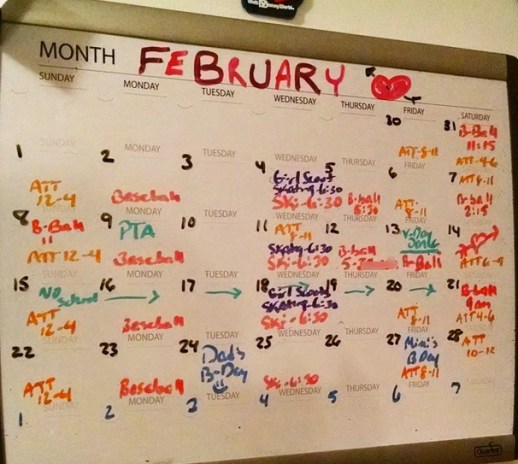 MONTH FEBRUARY
SUNDAY MONDAY TUESDAY WEDNESDAY THURSDAY FRIDAY SATURDAY
30 31 B-Ball
11:15
ATT 5-11 ATT 4-6
SUNDAY MONDAY TUESDAY WEDNESDAY THURSDAY FRIDAY
1 2 3 4 5 6 7
Girl Scout
Skating-6:30
ATT
12-4 Baseball Ski-6:30 B-ball
SUNDAY MONDAY TUESDAY WEDNESDAY THURSDAY FRIDAY
8 9 10 11 12 13 14
B-Ball
11 PTA ATT V-Day
ATT 12-4 Baseball Skating-6:30 B-ball B-Ball ATT 6-9
Ski-6:30
SUNDAY MONDAY TUESDAY WEDNESDAY THURSDAY FRIDAY
15 16 17 18 19 20 21
No
School Girl Scouts B-Ball
9am
ATT
12-4 Baseball Skating 6:30 ATT ATT 4-6
Ski-6:30
SUNDAY MONDAY TUESDAY WEDNESDAY THURSDAY FRIDAY
22 23 24 25 26 27 28
Dad's
B-Day Mimi's
B Day ATT
10-12
ATT
12-4 Baseball Ski-6:30 ATT 8-11
MONDAY TUESDAY WEDNESDAY THURSDAY FRIDAY
1 2 3 4 5 6 7
Quartet